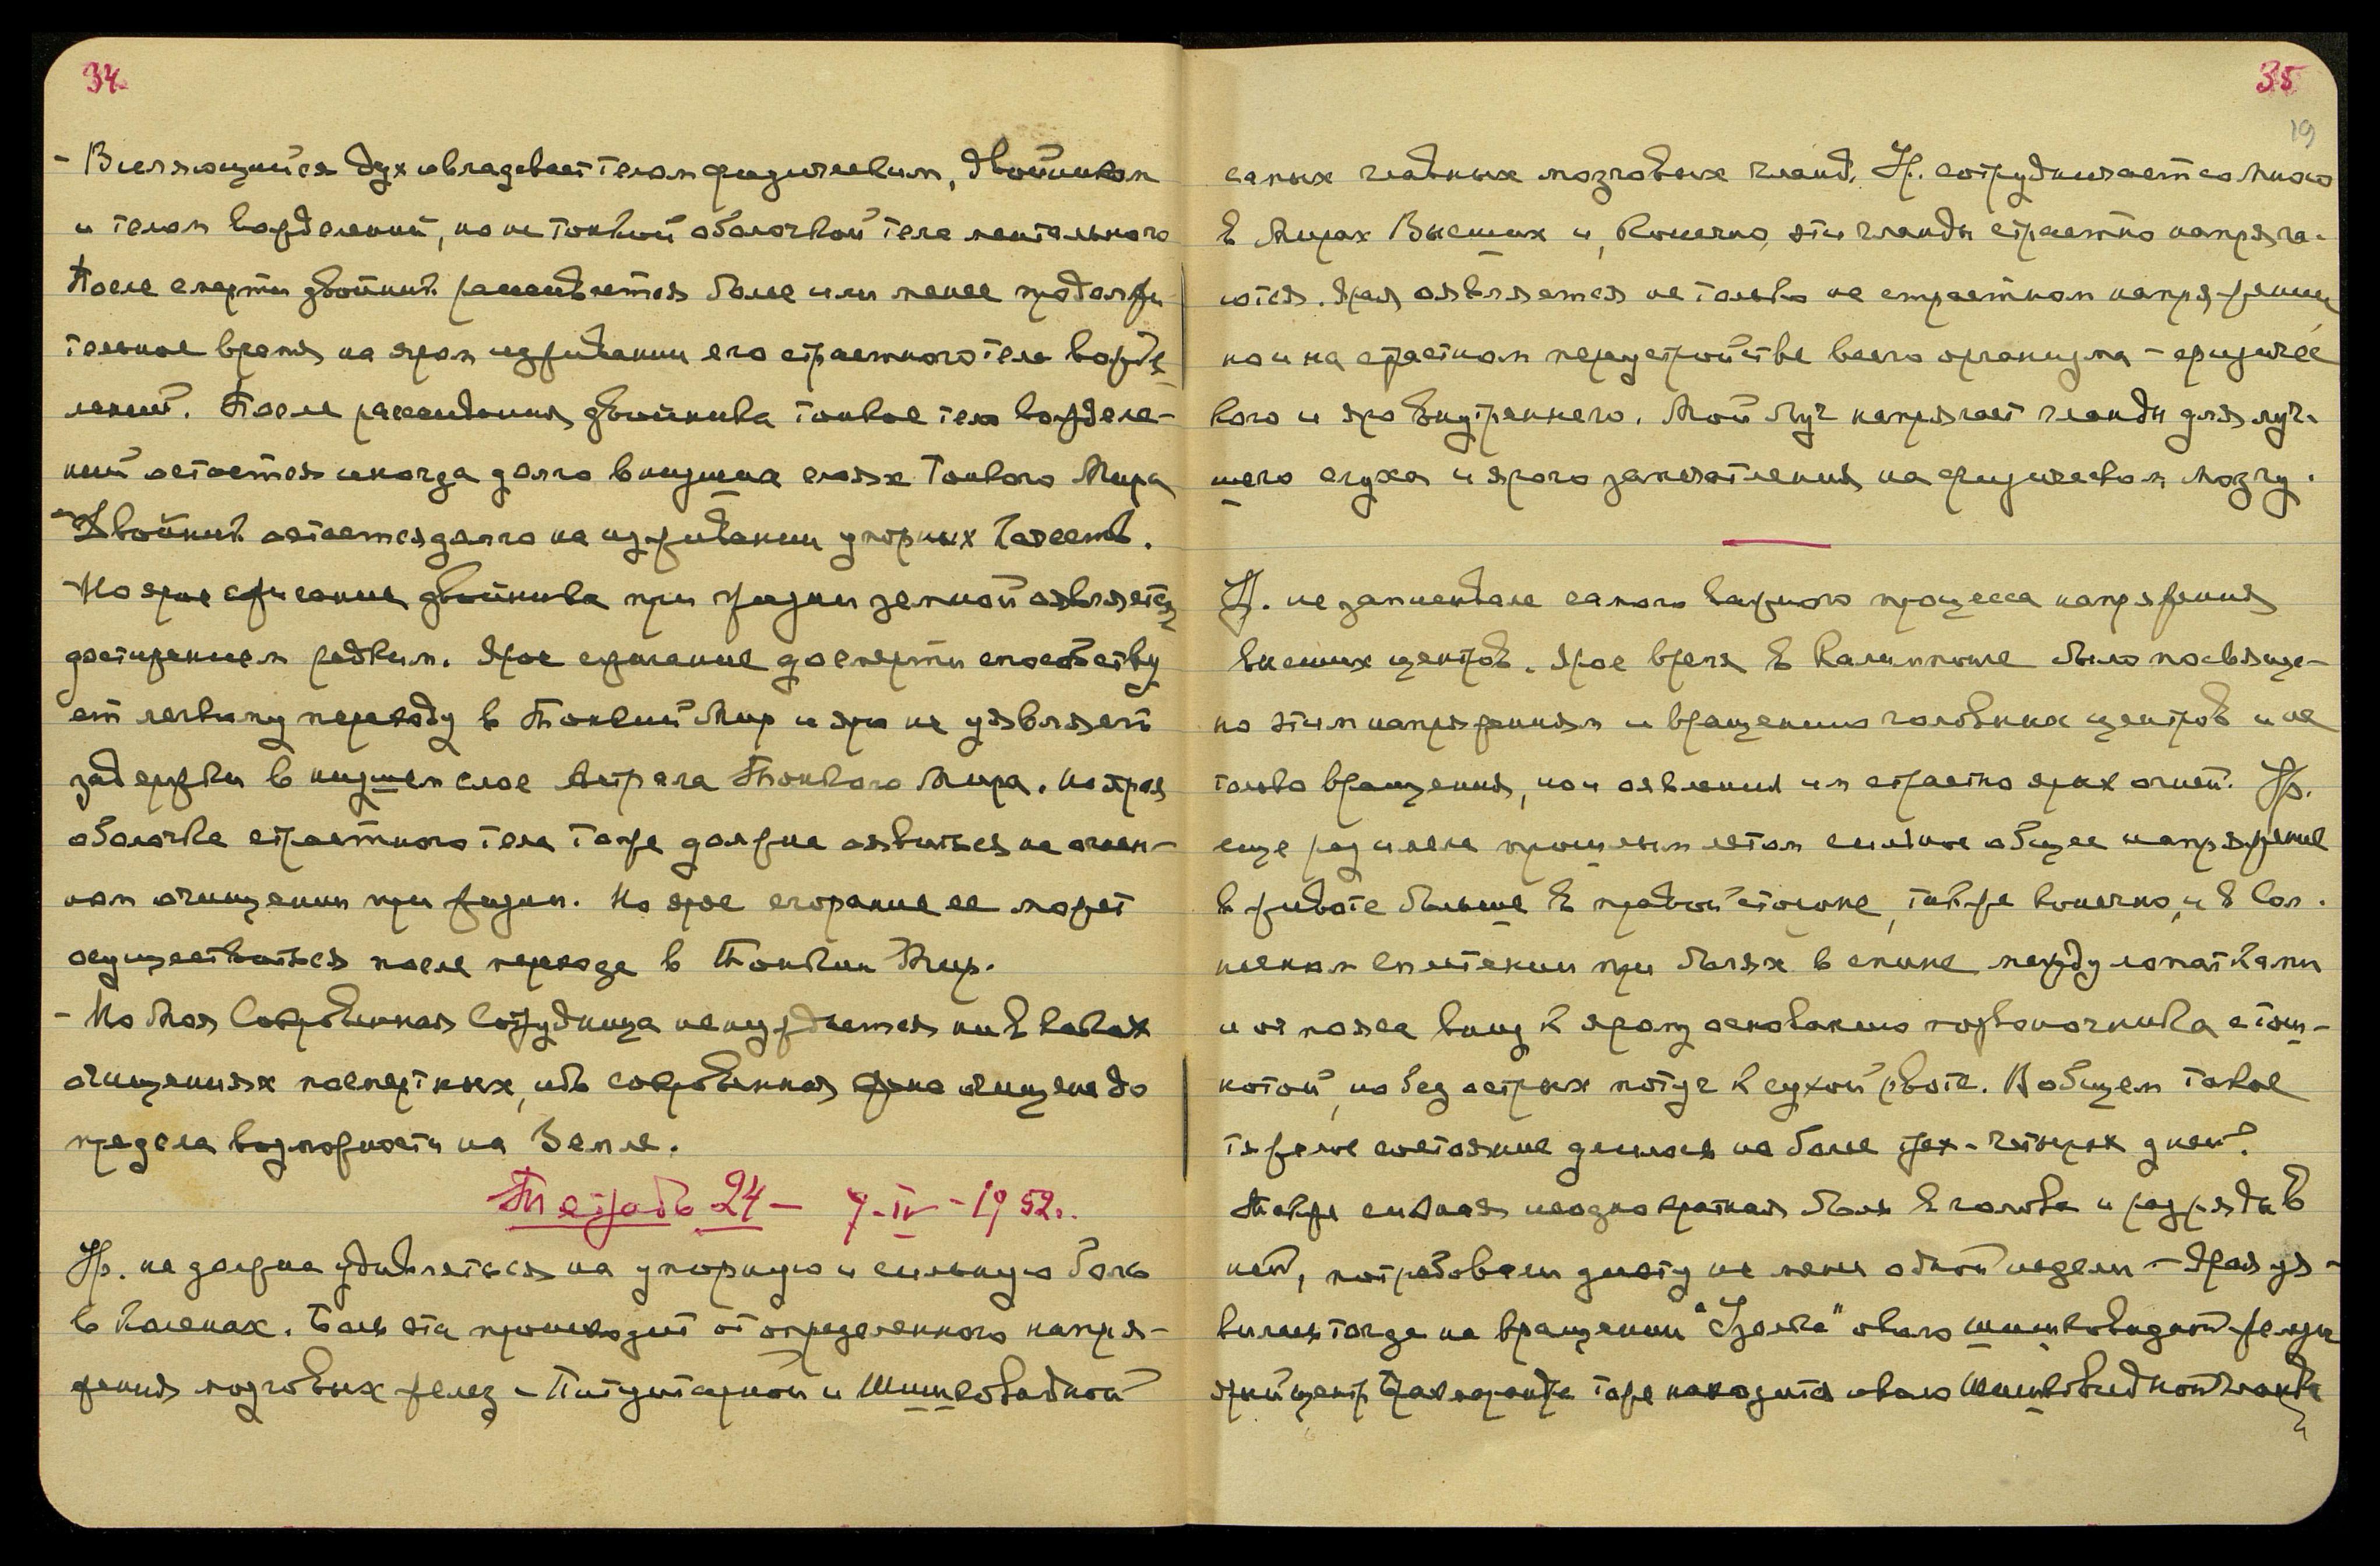 34
- Вселяющийся дух овладевает телом физическим, двойником
и телом вожделений, но не тонкой оболочкой тела ментального
После смерти двойник рассеивается более или менее продолжи
тельное время на яром изживании его страстного тела вожде
лений. После рассеивания двойника тонкое тело вожделе-
ний остается иногда долго в низших слоях Тонкого Мира
Двойник остается долго на изживании упорных качеств.
- Но ярое сжигание двойника при жизни земной является
достижением редким. Ярое сжигание до смерти способству
ет легкому переходу в Тонкий Мир и яро не уявляет
задержки в низшем слое Астрала Тонкого Мира. Но ярая
оболочка страстного тела тоже должна оявиться на огнен-
ном очищении при жизни. Но ярое сгорание ее может
осуществиться после перехода в Тонкий Мир.
- Но Моя Сокровенная Сотрудница не нуждается ни в каких
очищениях посмертных, ибо сокровенная очищена до
предела возможности на Земле.
Тетрадь 24 - 7-IV-1952.
Ур. не должна удивляться на упорную и сильную боль
в коленах. Боль эта происходит от определенного напря-
жения мозговых желез - Питуитарной и Шишковидной
35
19
самых главных мозговых гланд. Ур. сотрудничает со Мною
в Мирах Высших и, конечно, эти гланды страстно напряга-
ются. Ярая оявляется не только на страстном напряжении,
но и на страстном переустройстве всего организма - физичес
кого и яро внутреннего. Мой Луч напрягает гланды для луч-
шего слуха и ярого запечатления на физическом мозгу.
Ур. не записывала самого важного процесса напряжения
высших центров. Ярое время в Калимпонге было посвяще-
но этим напряжениям и вращению головных центров и не
только вращения, но и оявления им страстно ярых огней. Ур.
еще раз имела прошлым летом сильное общее напряжение
в животе больше в правой стороне, также конечно, и в Сол-
нечном сплетении при болях в спине между лопатками
и от пояса вниз к ярому основанию позвоночника с тош-
нотой, но без острых потуг к сухой рвоте. В общем такое
тяжелое состояние длилось не более трех-четырех дней.
Также сильная неоднократная боль в голове и разряды в
ней, потребовали диету не менее одной недели - Ярая уя-
вилась тогда на вращении "Узелка" около шишковидной железы
ярый центр Брамаранда тоже находится около Шишковидной Гланды
и